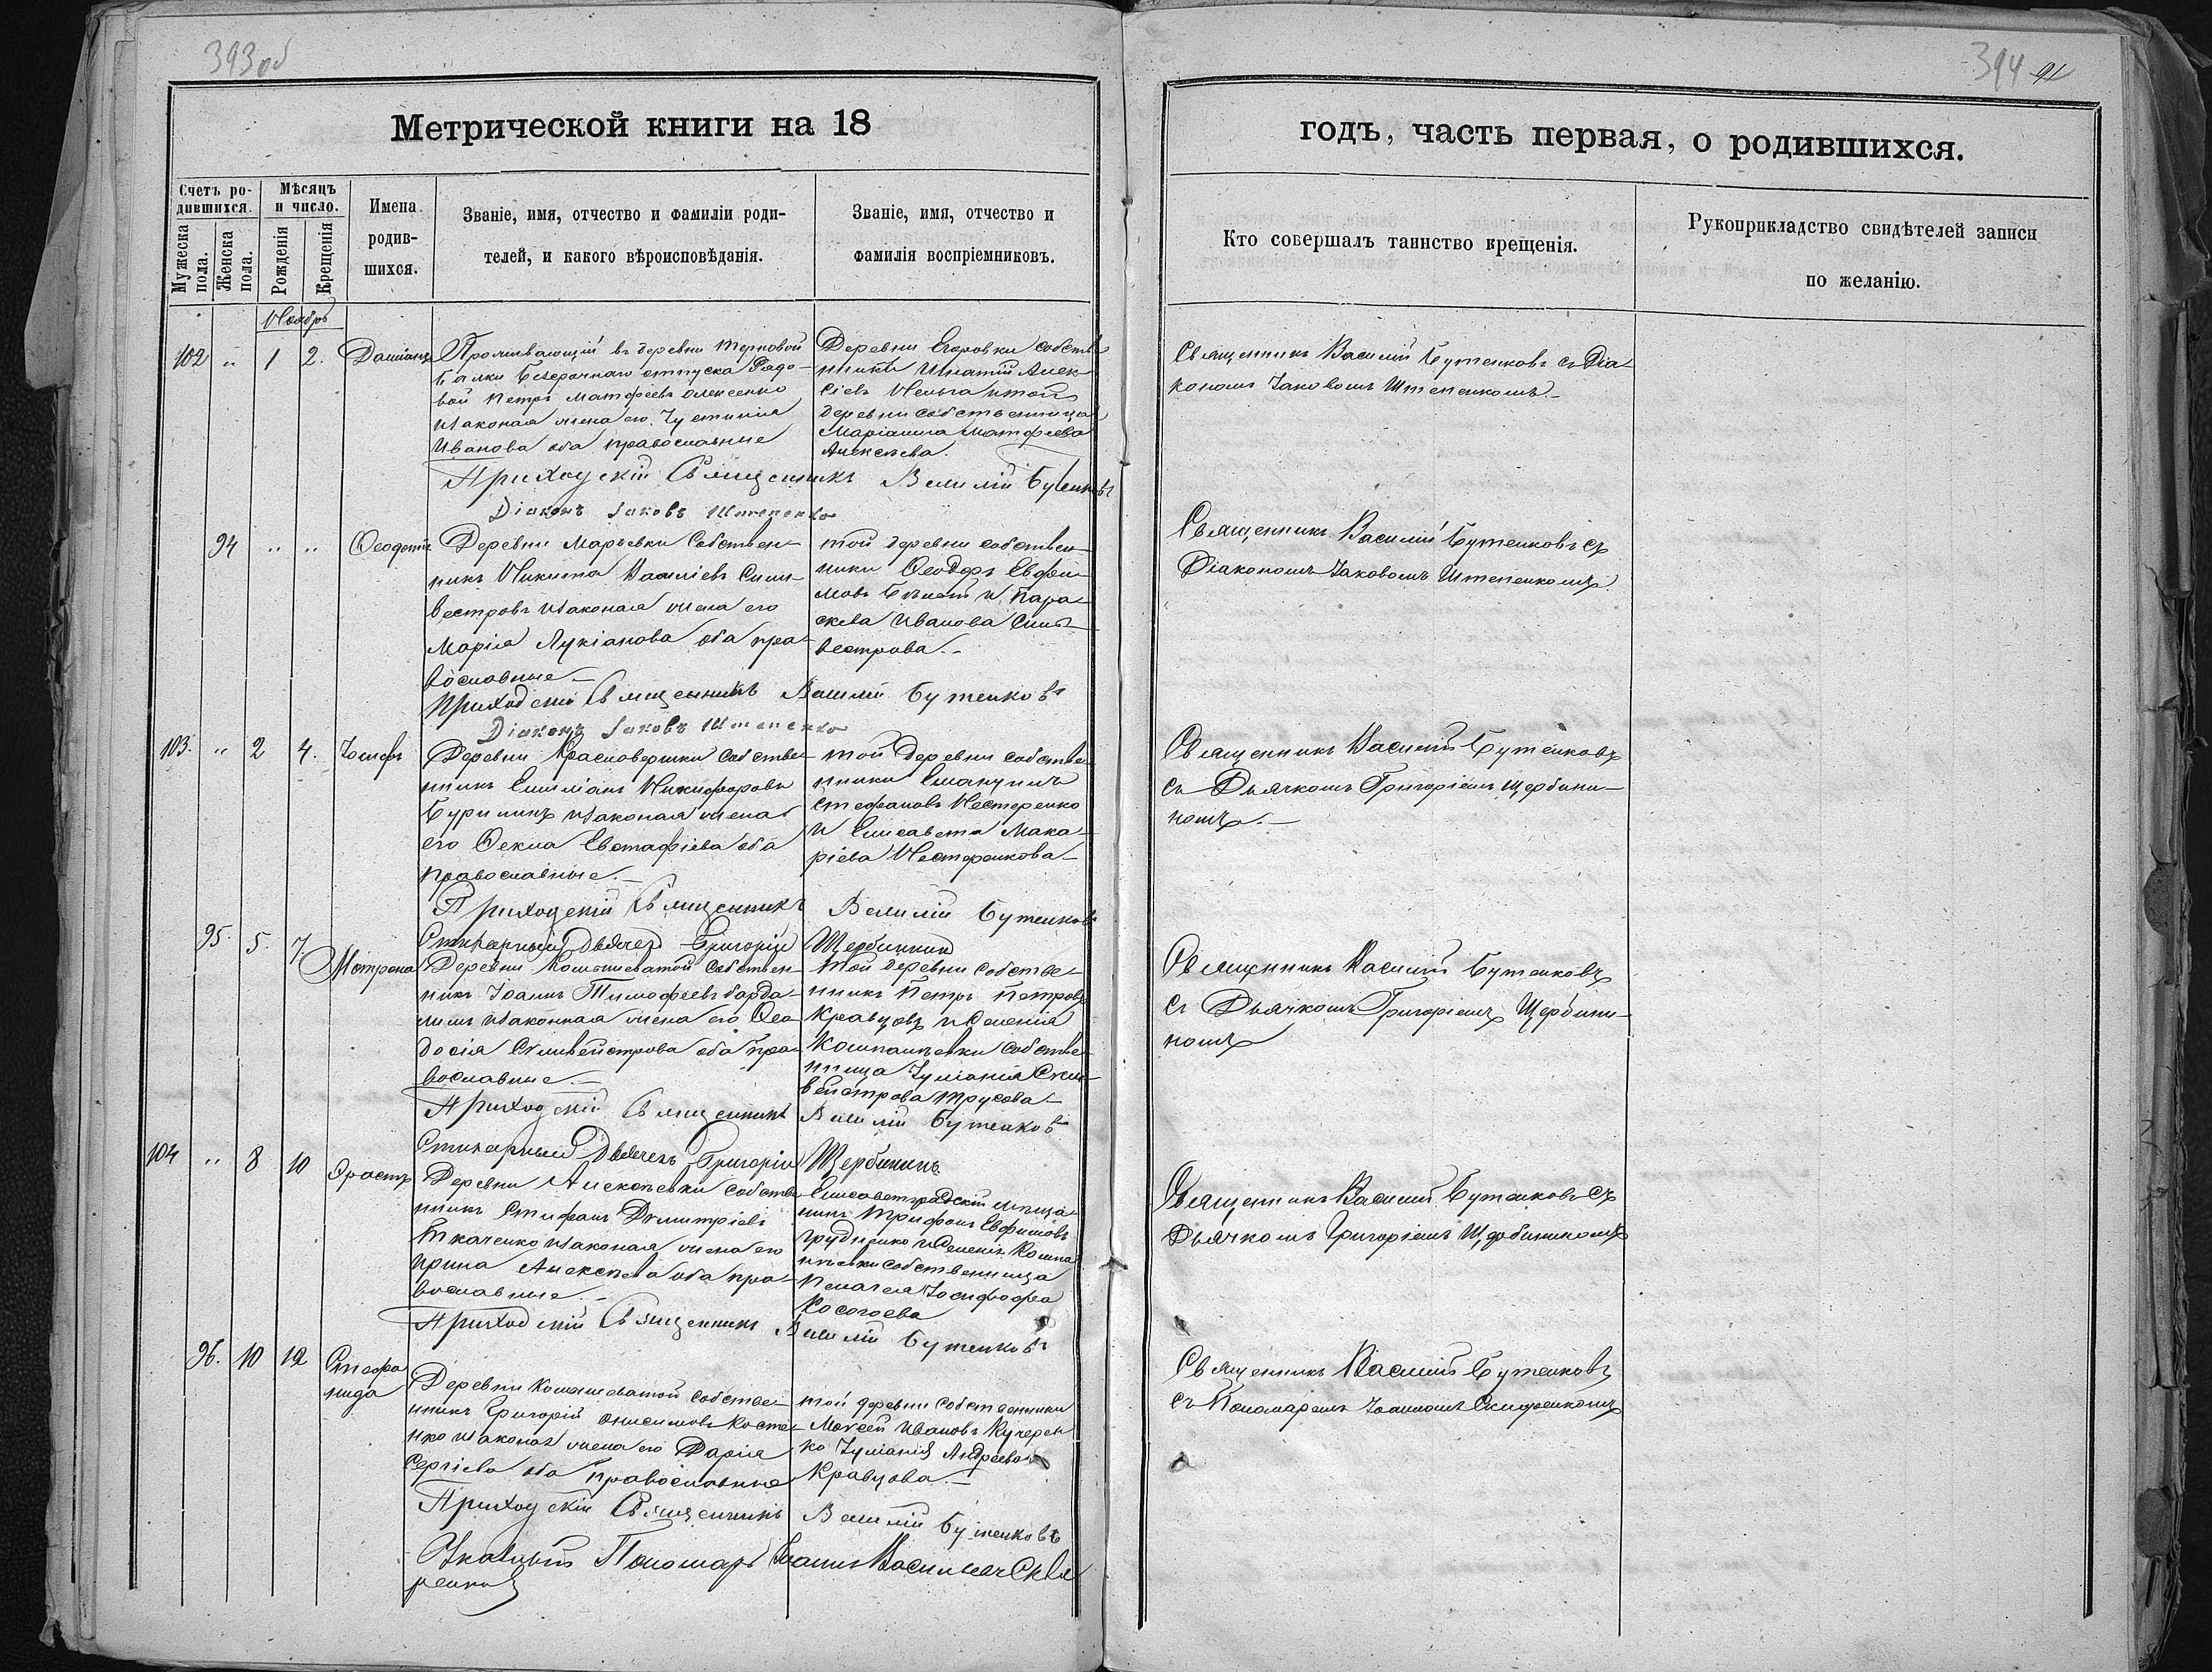 393 об
394 91
Метрической книги на 18
годъ, часть первая, о родившихся.
Счетъ ро-
дившихся.
Мужеска пола.
Женска пола.
Мѣсяцъ
и число.
Рожденія
Крещенія
Имена
родив-
шихся.
Званіе, имя, отчество и фамиліи роди-
телей, и какого вѣроисповѣданія.
Званіе, имя, отчество и
фамилія воспріемниковъ.
Кто совершалъ таинство крещенія.
Рукоприкладство свидѣтелей записи
по желанію.
Ноябрь
102 „ 1 2. Даміанъ
Проживающій въ деревни Терновой
Балки безсрочнаго отпуска Рядо-
вой Петръ Матфеевъ Олексенко
и законная жена его Іустинія
Иванова оба православные
Деревни Егоровки собстве
нники Игнатій Алек-
сіевъ и той
деревни собственница
Маріамна Матфеева
Алексѣева.
Священникъ Василій Бутенковъ съ Діа-
кономъ Іаковомъ Штепенкомъ.
Приходскій Священникъ Василій Бутенковъ
Діаконъ Іаковъ Штепенко
94 „ „ Ѳеодотія
Деревни Марьевки Собствен-
никъ Никита Василіевъ Силь-
вестровъ и законная жена его
Марія Лукіанова оба пра-
вославные
той деревни собствен-
ники Ѳеодоръ Евфи-
мовъ и Пара-
скева Иванова Силь-
вестрова.
Священникъ Василій Бутенковъ съ
Діакономъ Іаковомъ Штепенкомъ
Приходскій Священникъ Василій Бутенковъ
Діаконъ Іаковъ Штепенко
103. „ 2 4. Іосифъ
Деревни Красновершки Собстве-
нникъ Емиліанъ Никифоровъ
Бурилинъ и законная жена
его Ѳекла Евстафіева оба
православные.
той деревни собстве-
нники Емануилъ
Стефановъ Нестеренко
и Елисавета Мака-
ріева Нестеренкова
Священникъ Василій Бутенковъ
съ Дьячкомъ Григоріемъ Щербини-
номъ.
Приходскій Священникъ Василій Бутенковъ
Стихарный Дьячекъ Григорій Щербининъ
95. 5. 7. Матрона
Деревни Комышеватой Собствен-
никъ Іоаннъ Тимофеевъ
и законная жена его Ѳео-
досія Сильвестрова оба пра-
вославные.
той деревни собстве-
нникъ Петръ Петровъ
Кравцовъ и селенія
Компанѣевки Собстве-
нница Іуліанія Сил-
вестрова Трусова
Священникъ Василій Бутенковъ
съ Дьячкомъ Григоріемъ Щербини-
номъ
Приходскій Священникъ Василій Бутенковъ
Стихарный Дьячекъ Григорій Щербининъ
104 „ 8 10 Орестъ
Деревни Алексѣевки собстве
нникъ Стефанъ Димитріевъ
Ткаченко и законная жена его
Ирина Алексѣева оба пра-
вославные.
Елисаветградскій мѣща-
нинъ Трифонъ Евфимовъ
и селенія Компа
нѣевки собственница
Пелагея Іосифова
Священникъ Василій Бутенковъ съ
Дьячкомъ Григоріемъ Щербининомъ
Приходскій Священникъ Василій Бутенковъ
96. 10 12 Стефа
нида
Деревни Комышеватой собстве-
нникъ Григорій Онисимовъ Косте-
нко и законная жена его Дарія
Сергіева оба православные
той деревни собственники
Моисей Ивановъ Кучерен
ко Іуліанія Андреева
Кравцова.
Священникъ Василій Бутенковъ
съ Пономаремъ Іоанномъ
Приходскій Священникъ Василій Бутенковъ
Указный Пономарь Іоаннъ Васильевъ Скля
ренко